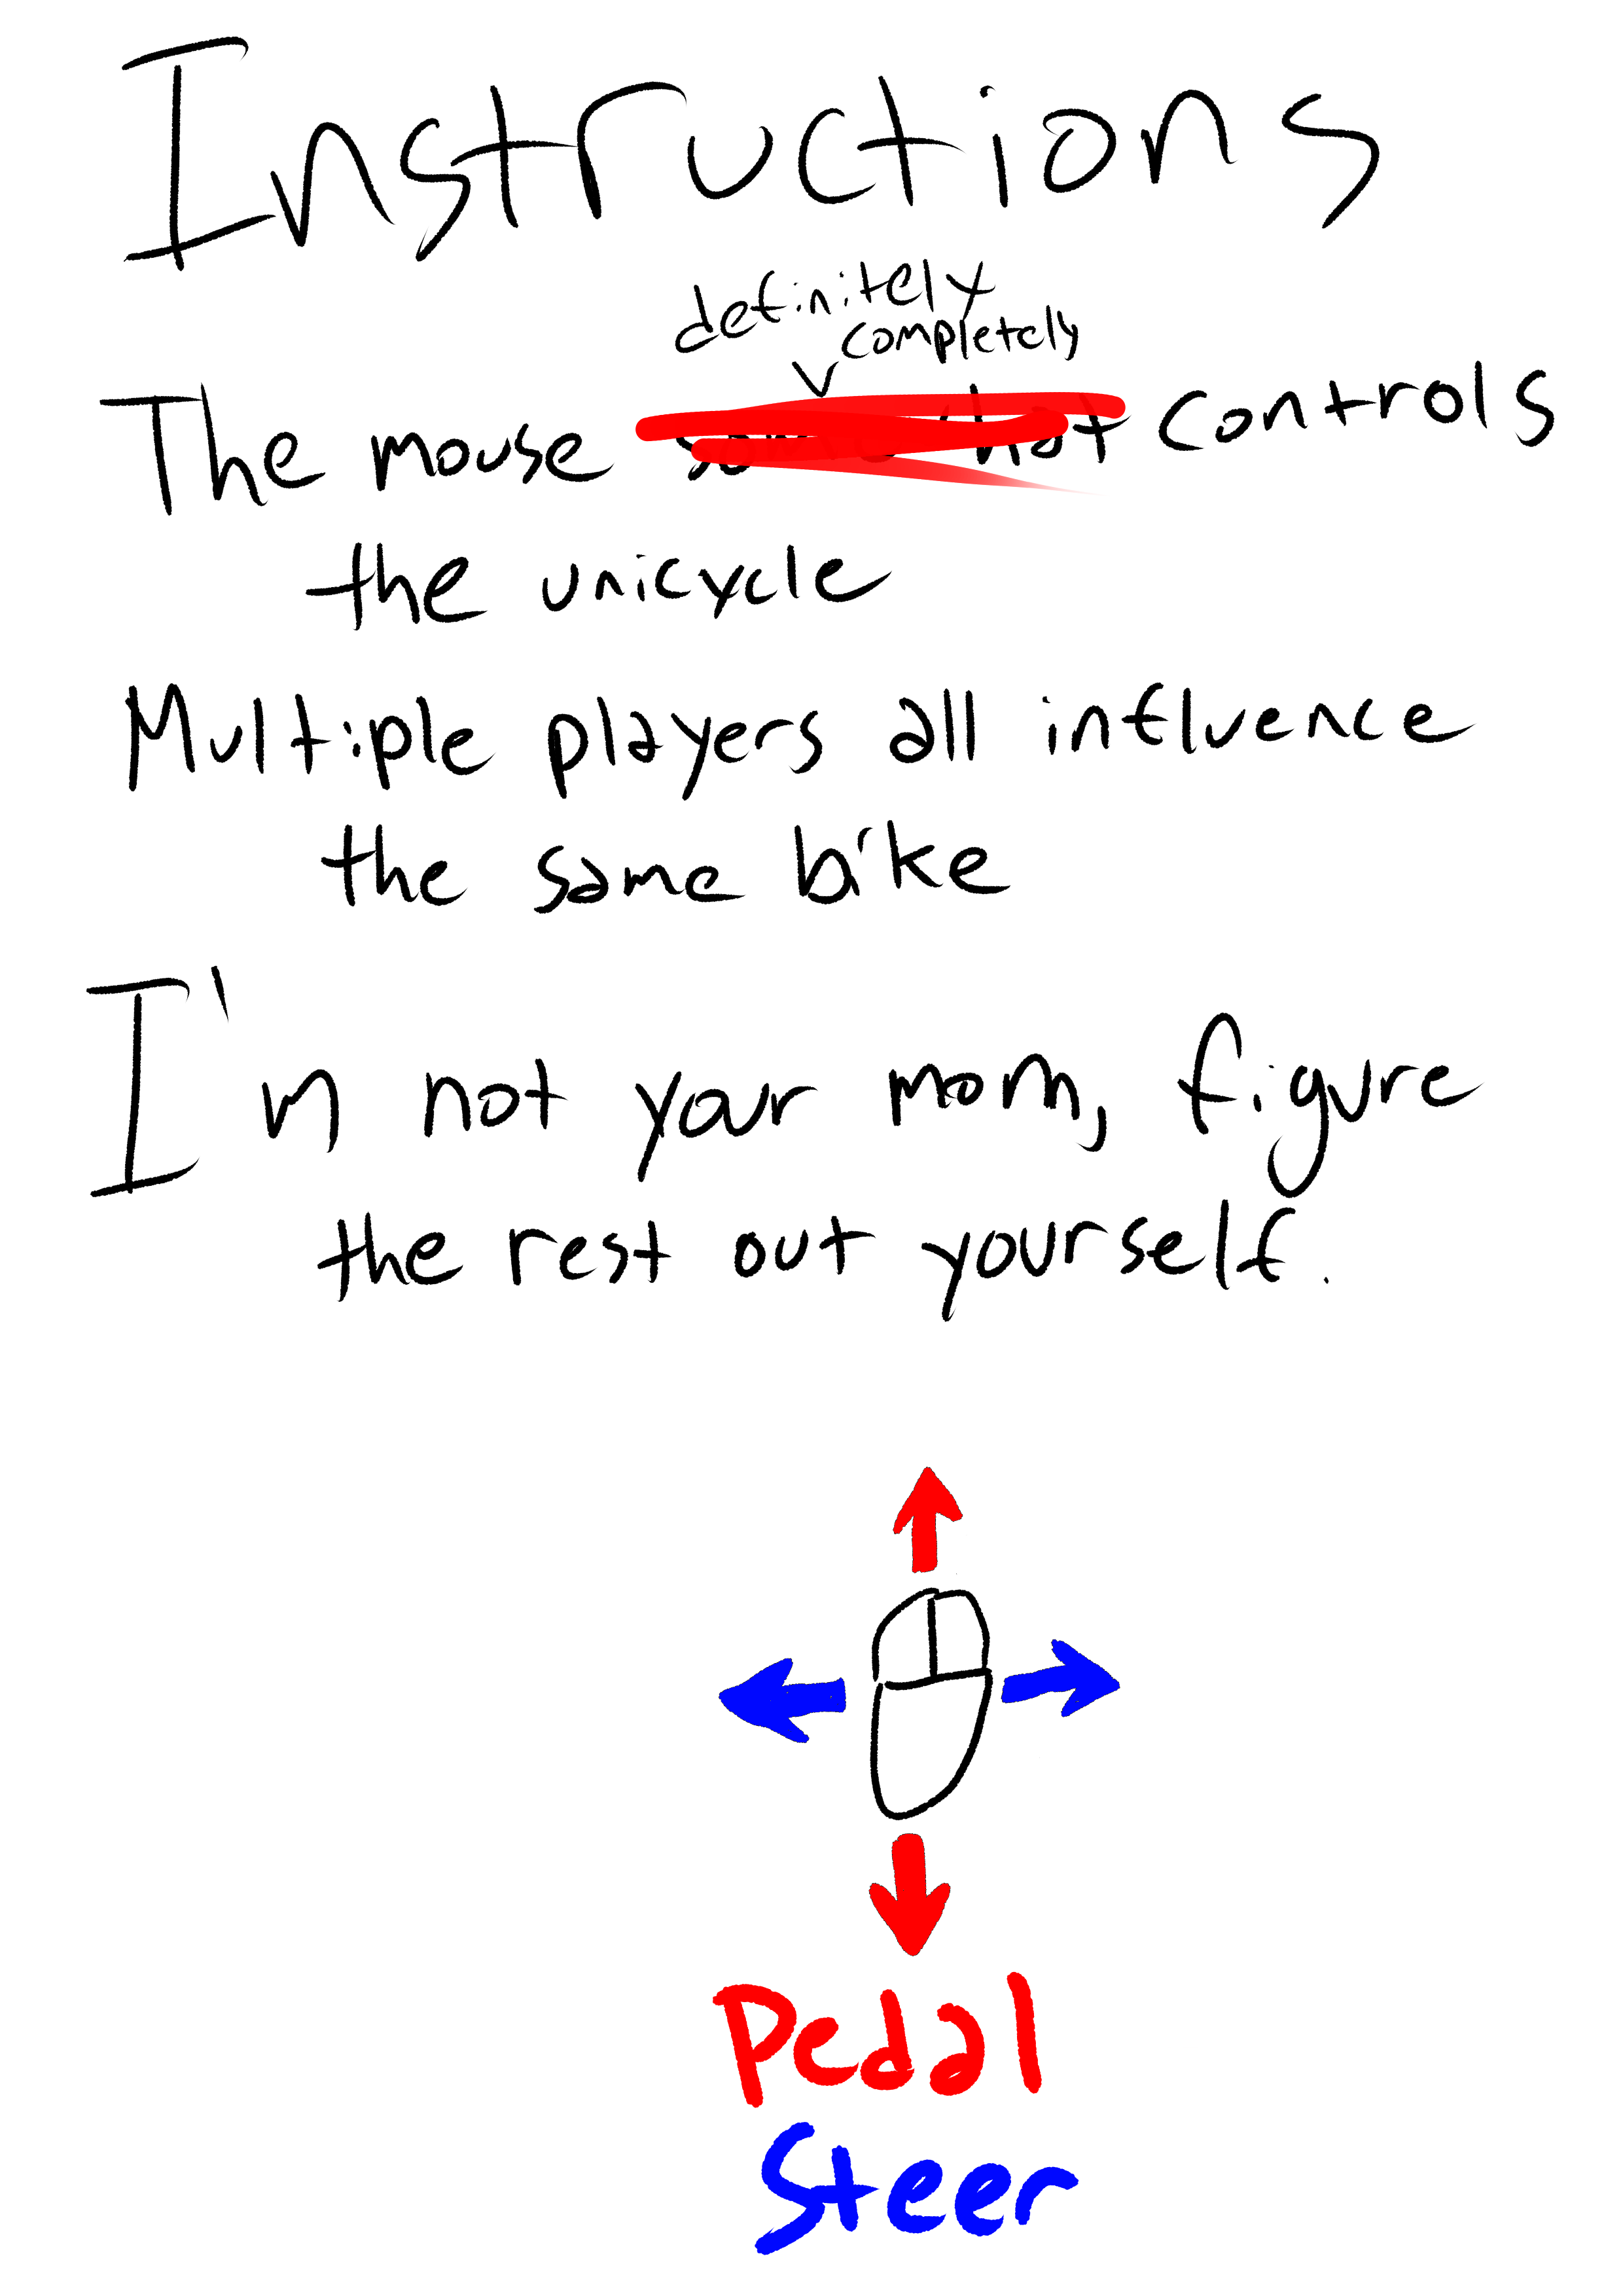 Instructions
definitely
completely
The mouse controls
the unicycle
Multiple players all influence
the same bike
I'm not your mom, figure
the rest out yourself.
Pedal
Steer